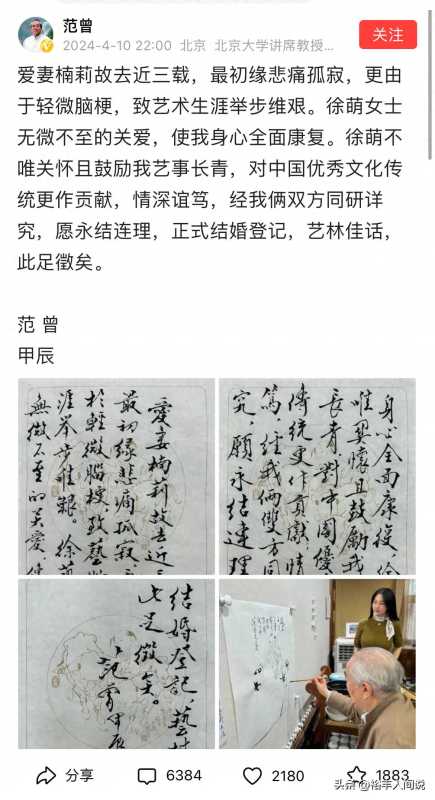 范曾
2024-4-10 22:00 北京 北京大学讲席教授...
关注
爱妻楠莉故去近三载，最初缘悲痛孤寂，更由
于轻微脑梗，致艺术生涯举步维艰。徐萌女士
无微不至的关爱，使我身心全面康复。徐萌不
唯关怀且鼓励我艺事长青，对中国优秀文化传
统更作贡献，情深谊笃，经我俩双方同研详
究，愿永结连理，正式结婚登记，艺林佳话，
此足徵矣。
范 曾
甲辰
愛妻楠莉故去近三
最初缘悲痛孤寂
於輕微腦梗，致藝
涯举步維艱。徐萌
無微不至的关爱，使
身心全面康復，徐
唯関懷且鼓励我
長青，對中國優
傳統更作貢獻，情
篤，經我倆雙方同
究，願永结連理
结婚登記，藝林
此足徵矣。
范曾甲辰
分享
6384
2180
1883
头条 @裕丰人间说